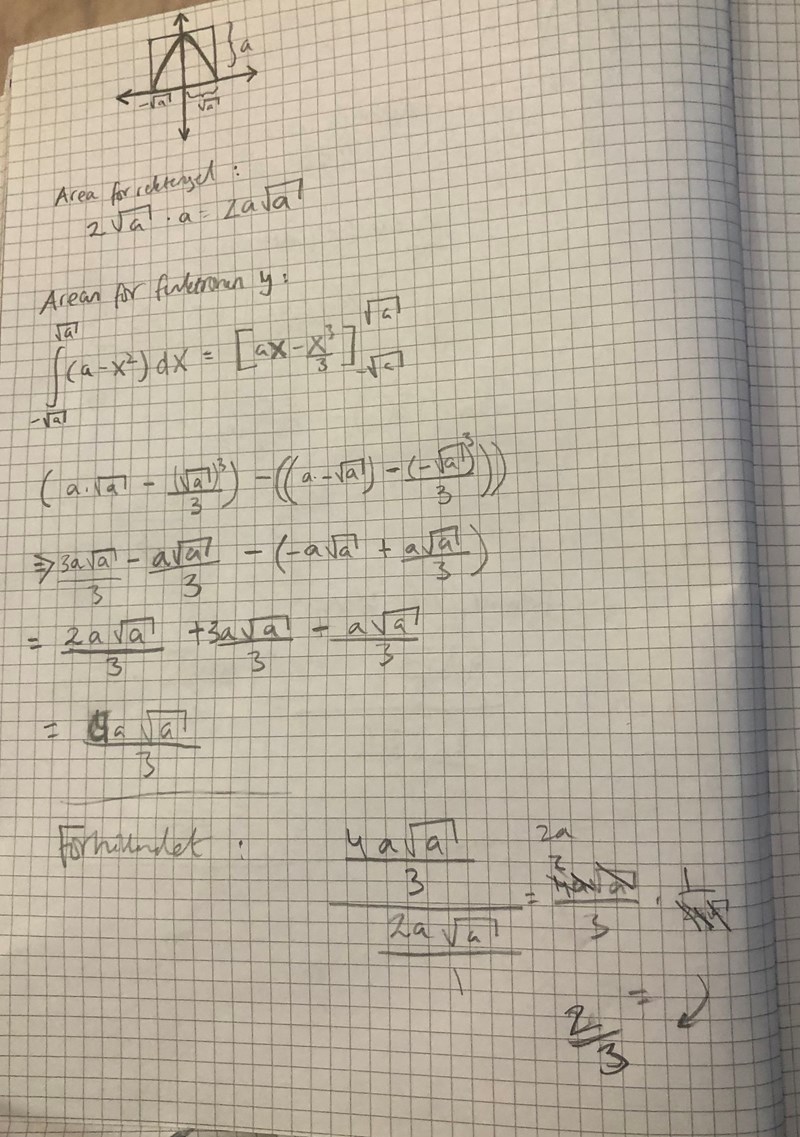 a
-√a √a
Area for rektangel:
2√a · a = 2a√a
Arean for funktionen y:
√a
∫(a-x²)dx = [ax - x³/3]
√a
-√a
-√a
(a·√a - (√a)³/3) - ((a·-√a) - (-√a)³/3))
⇒ 3a√a/3 - a√a/3 - (-a√a + a√a/3)
= 2a√a/3 + 3a√a/3 - a√a/3
= 4a√a/3
Förhållandet:
4a√a/3
2a√a/1
=
2a
2
4a√a/3 · 1
=
2/3